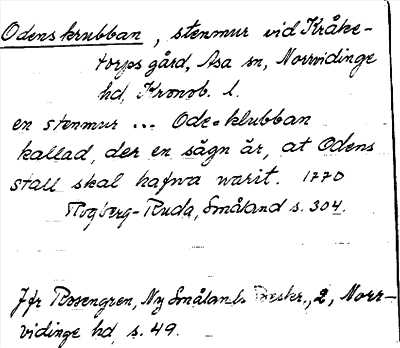 Odens krubban, stenmur vid Kråke-
torps gård, Asa sn, Norrvidinge
hd, Kronob. l.
en stenmur ... Ode-klubban
kallad, der en sägn är, at Odens
stall skal hafwa warit. 1770
Rogberg-Ruda, Småland s. 304.
Jfr Rosengren, Ny Smålands Beskr., 2, Norr-
vidinge hd, s. 49.